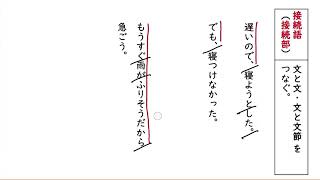 接続語
（接続部）
文と文・文と文節 を
つなぐ。
遅いので、寝ようとした。
でも、寝つけなかった。
もうすぐ雨がふりそうだから
急ごう。